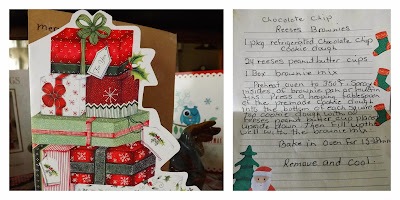 mer
Chocolate Chip
Reeses Brownies
1 pkg. refrigerated Chocolate Chip
Cookie dough
24 reeses peanut butter cups
1 Box brownie mix
Preheat oven to 350°. Spray
insides of brownie pan or muffin
tins. Press a heaping tablespoon
of the premade Cookie dough
into the bottom of each square
top cookie dough with a
reeses peanut butter cup placed
upside down. Then fill up the
well w/ the brownie mix.
Bake in Oven for
Remove and Cool!